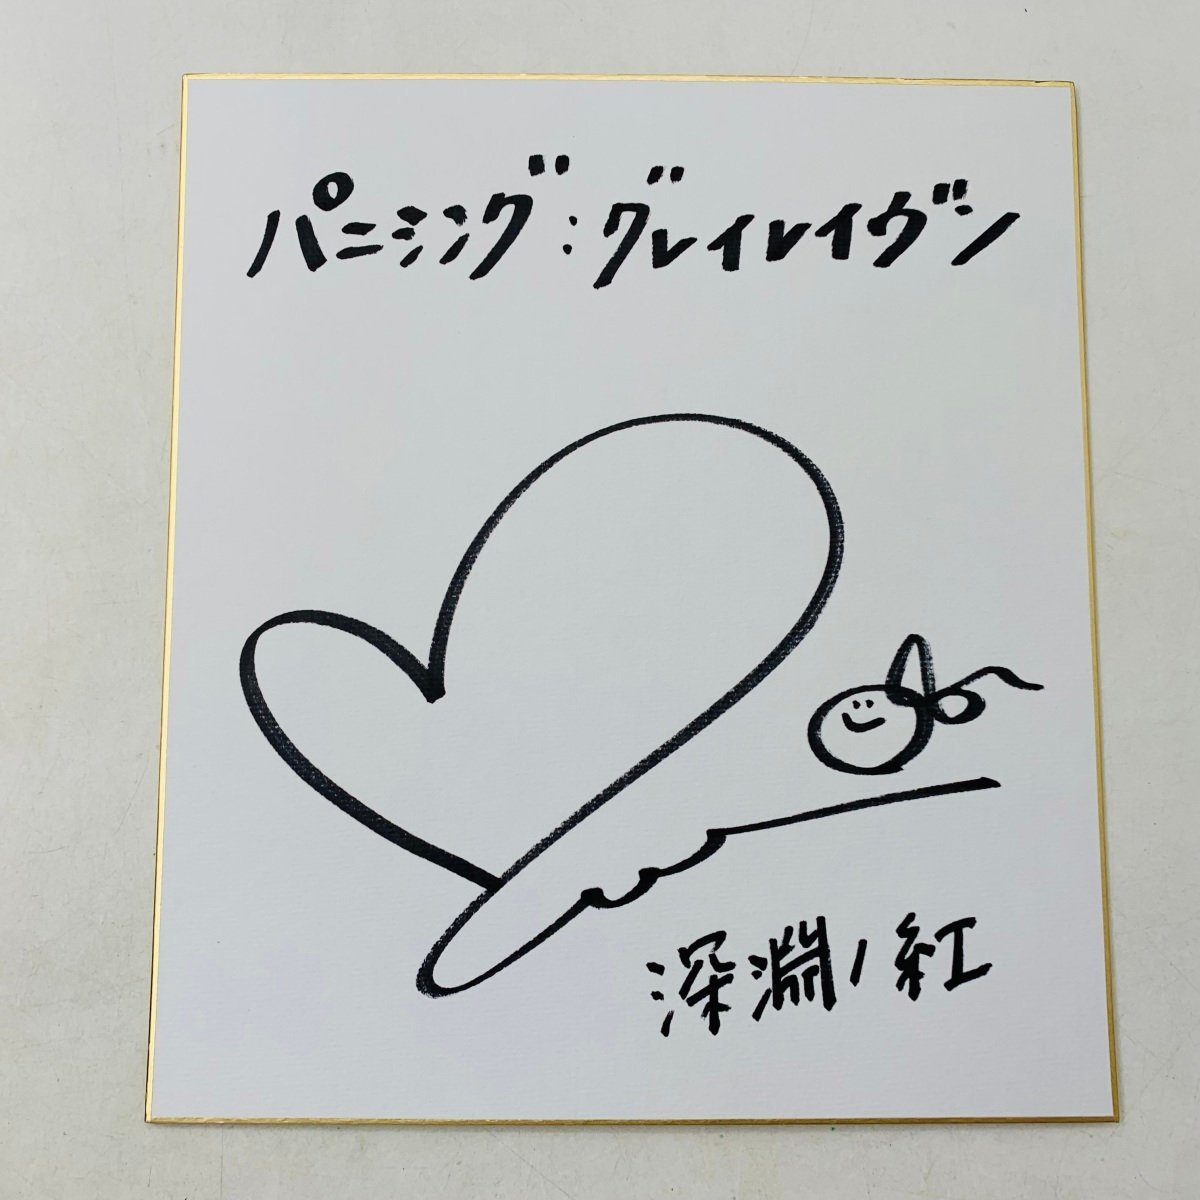 パニシング:グレイレイヴン
深淵ノ紅